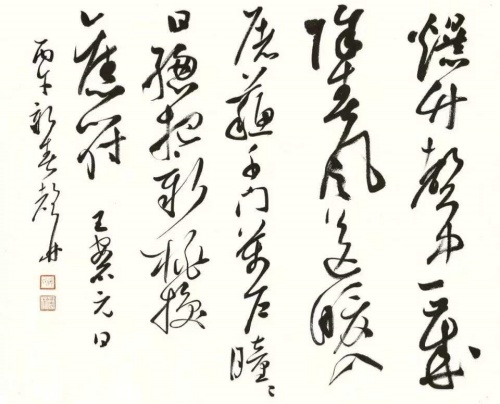 爆竹聲中一歲
除春風送暖入
屠蘇千門萬户瞳々
日總把新桃換
舊符 王安石元日
丙午新春